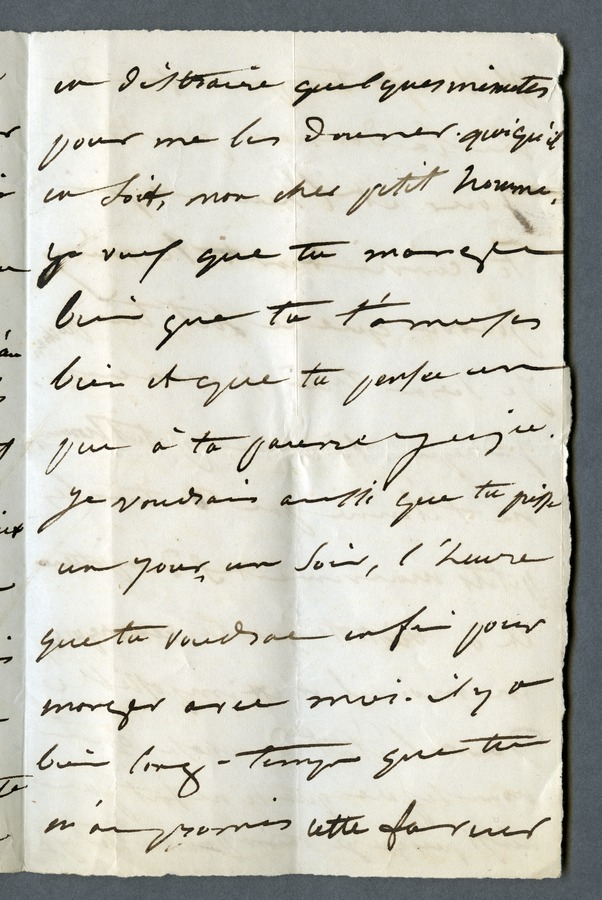 en distraire quelques minutes
pour me les donner. quoiqu'il
en soit, mon cher petit homme,
je veux que tu manges
bien que tu t'amuses
bien et que tu penses un
peu à ta pauvre juju.
Je voudrais aussi que tu prisse
un jour, un soir, l'heure
que tu voudras enfin pour
manger avec moi. il y a
bien long-temps que tu
m'as promis cette faveur